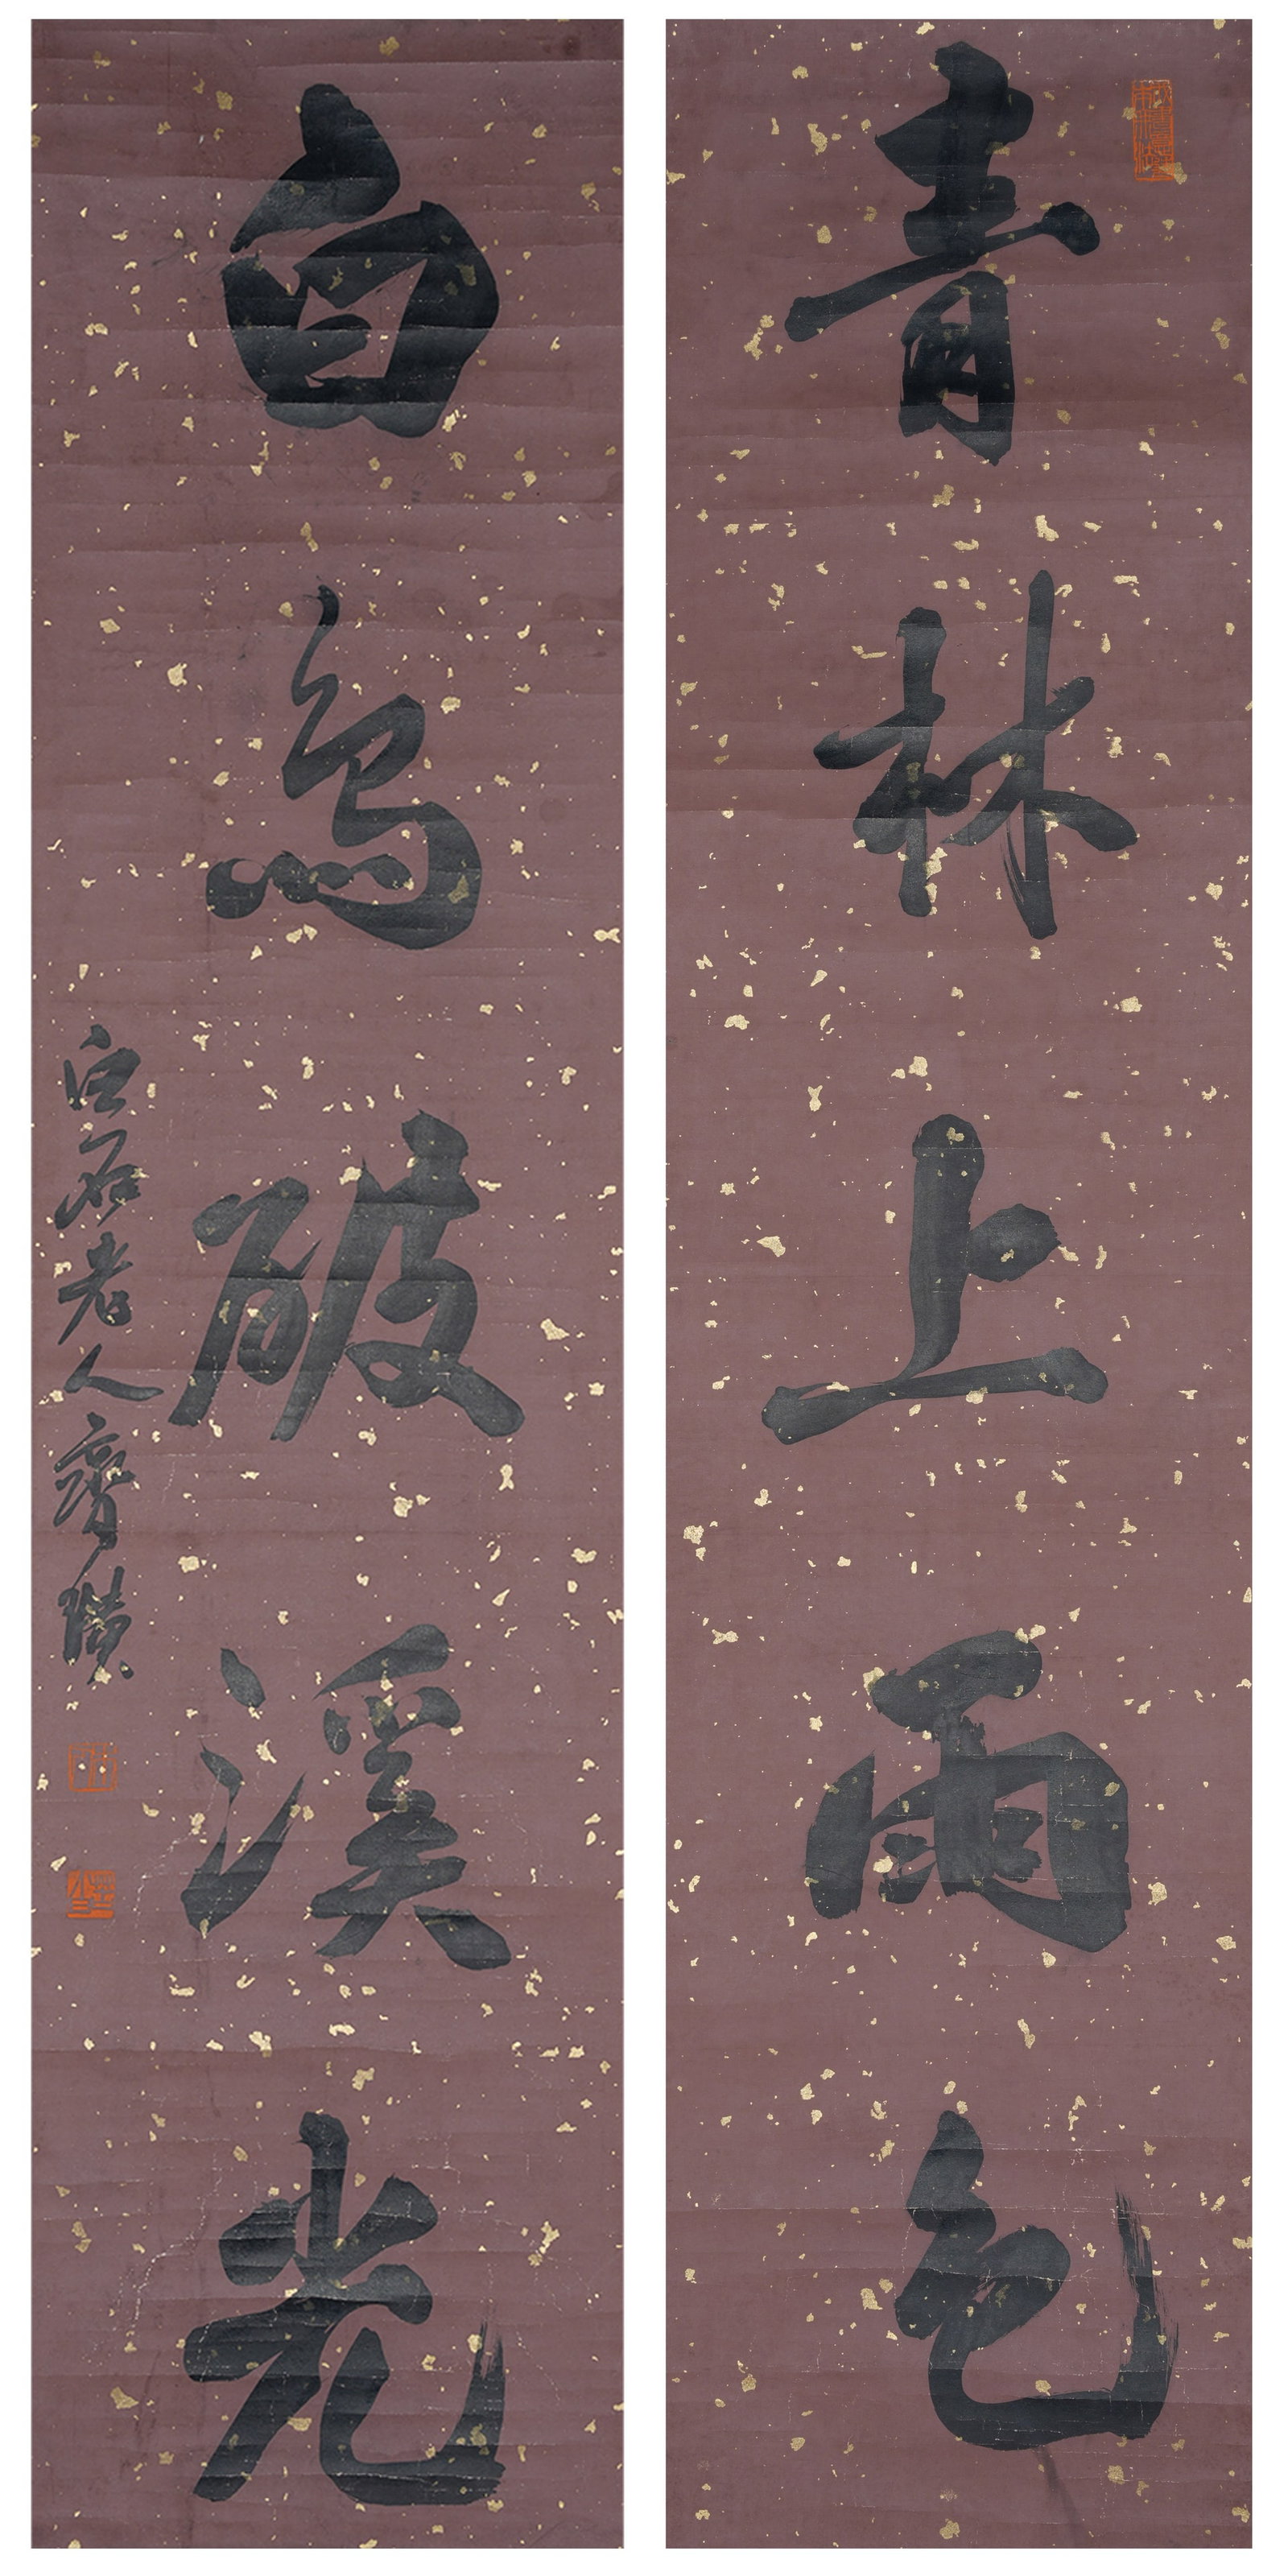 青林上雨色
白鳥破溪光
白石老人齊璜